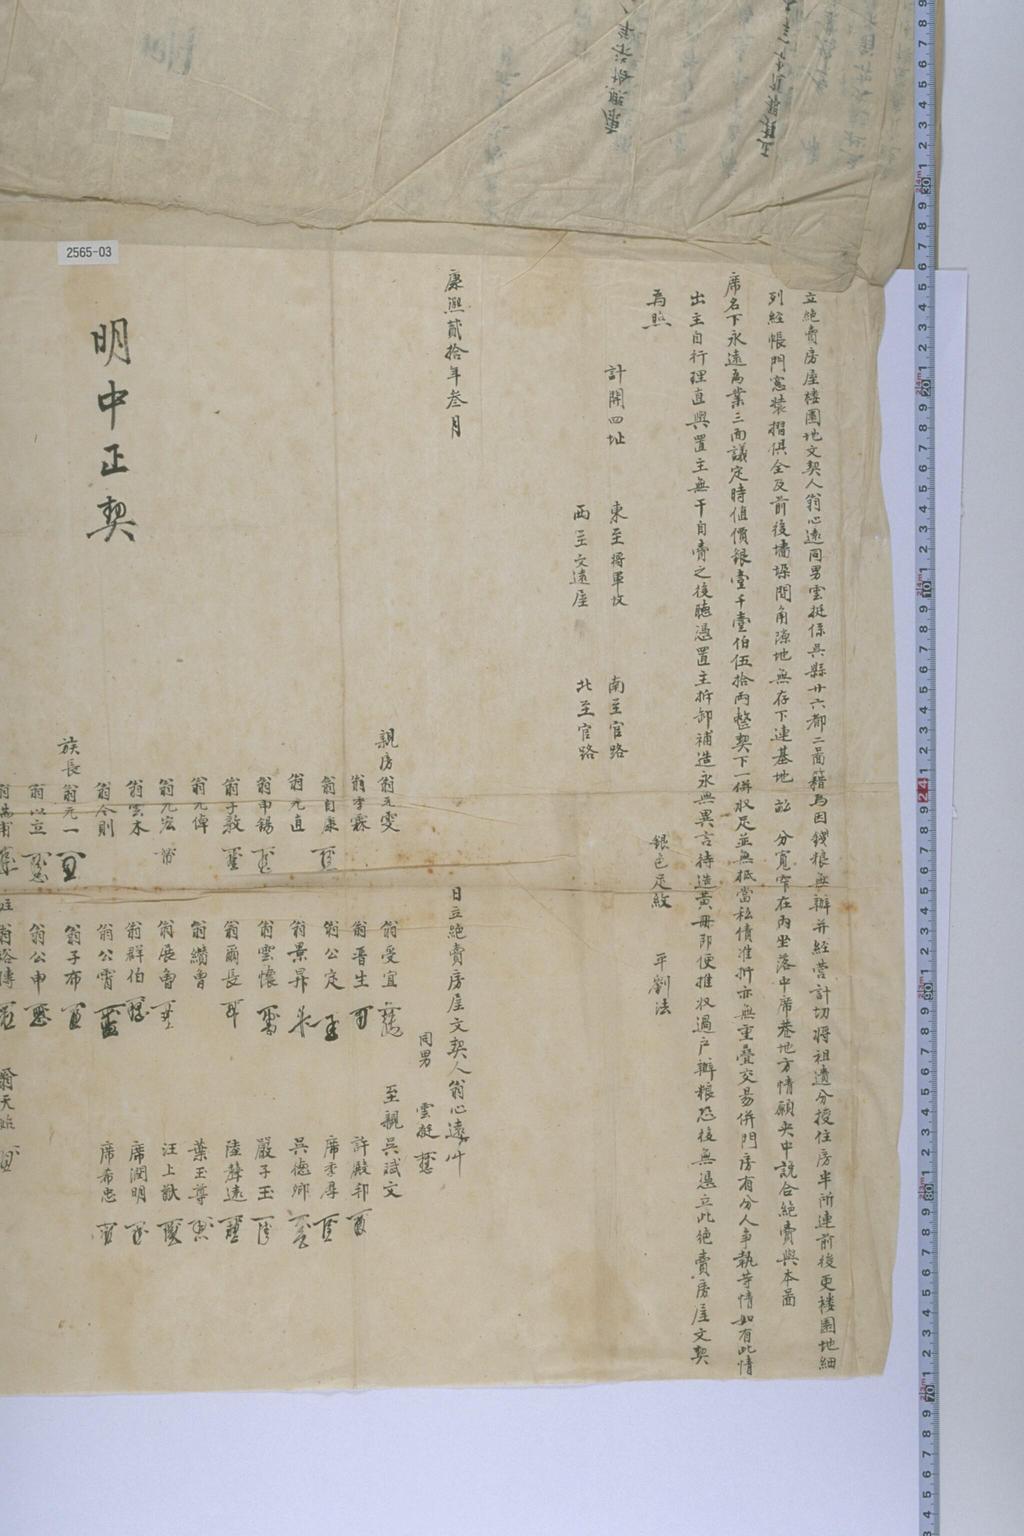 立絶賣房屋楼園地文契人翁心遠同男雲挺係吳縣廿六都二啚籍為因錢粮無辦并經營計切將祖遺分授住房半所連前後更楼園地細
列經帳門窓裝摺俱全及前後墻垜間角隙地無存下連基地 分寬窄在內坐落中席巷地方情願央中説合絶賣與本啚
席名下永遠為業三面議定時值價銀壹千壹伯伍拾両整契下一併收足並無抵當私債准折亦無重疊交易併門房有分人爭執等情如有此情
出主自行理直與置主無干自賣之後聽憑置主拆卸補造永無異言待造黃冊即便推收過户辦粮恐後無憑立此絶賣房屋文契
為照
銀色足紋 平劃法
計開四址 東至將軍坟 南至官路
西至文遠屋 北至官路
康熙貳拾年叁月 日立絶賣房屋文契人翁心遠
同男 雲挺
親房翁元雯 翁受宜 至親吳斌文
翁季霖 翁晋生 許殿邦
翁自康 翁公定 席季尋
翁元直 翁景昇 吳德鄉
翁申錫 翁雲懷 嚴子玉
翁于敦 翁爾長 陸聲遠
翁元倬 翁纘曾 葉玉尊
翁元宏 翁展曾 汪上猷
翁雲木 翁群伯 席潤明
翁令則 翁公霄 席希忠
族長翁元一 翁子布
翁以立 翁公申
翁天始
明中正契
2565-03